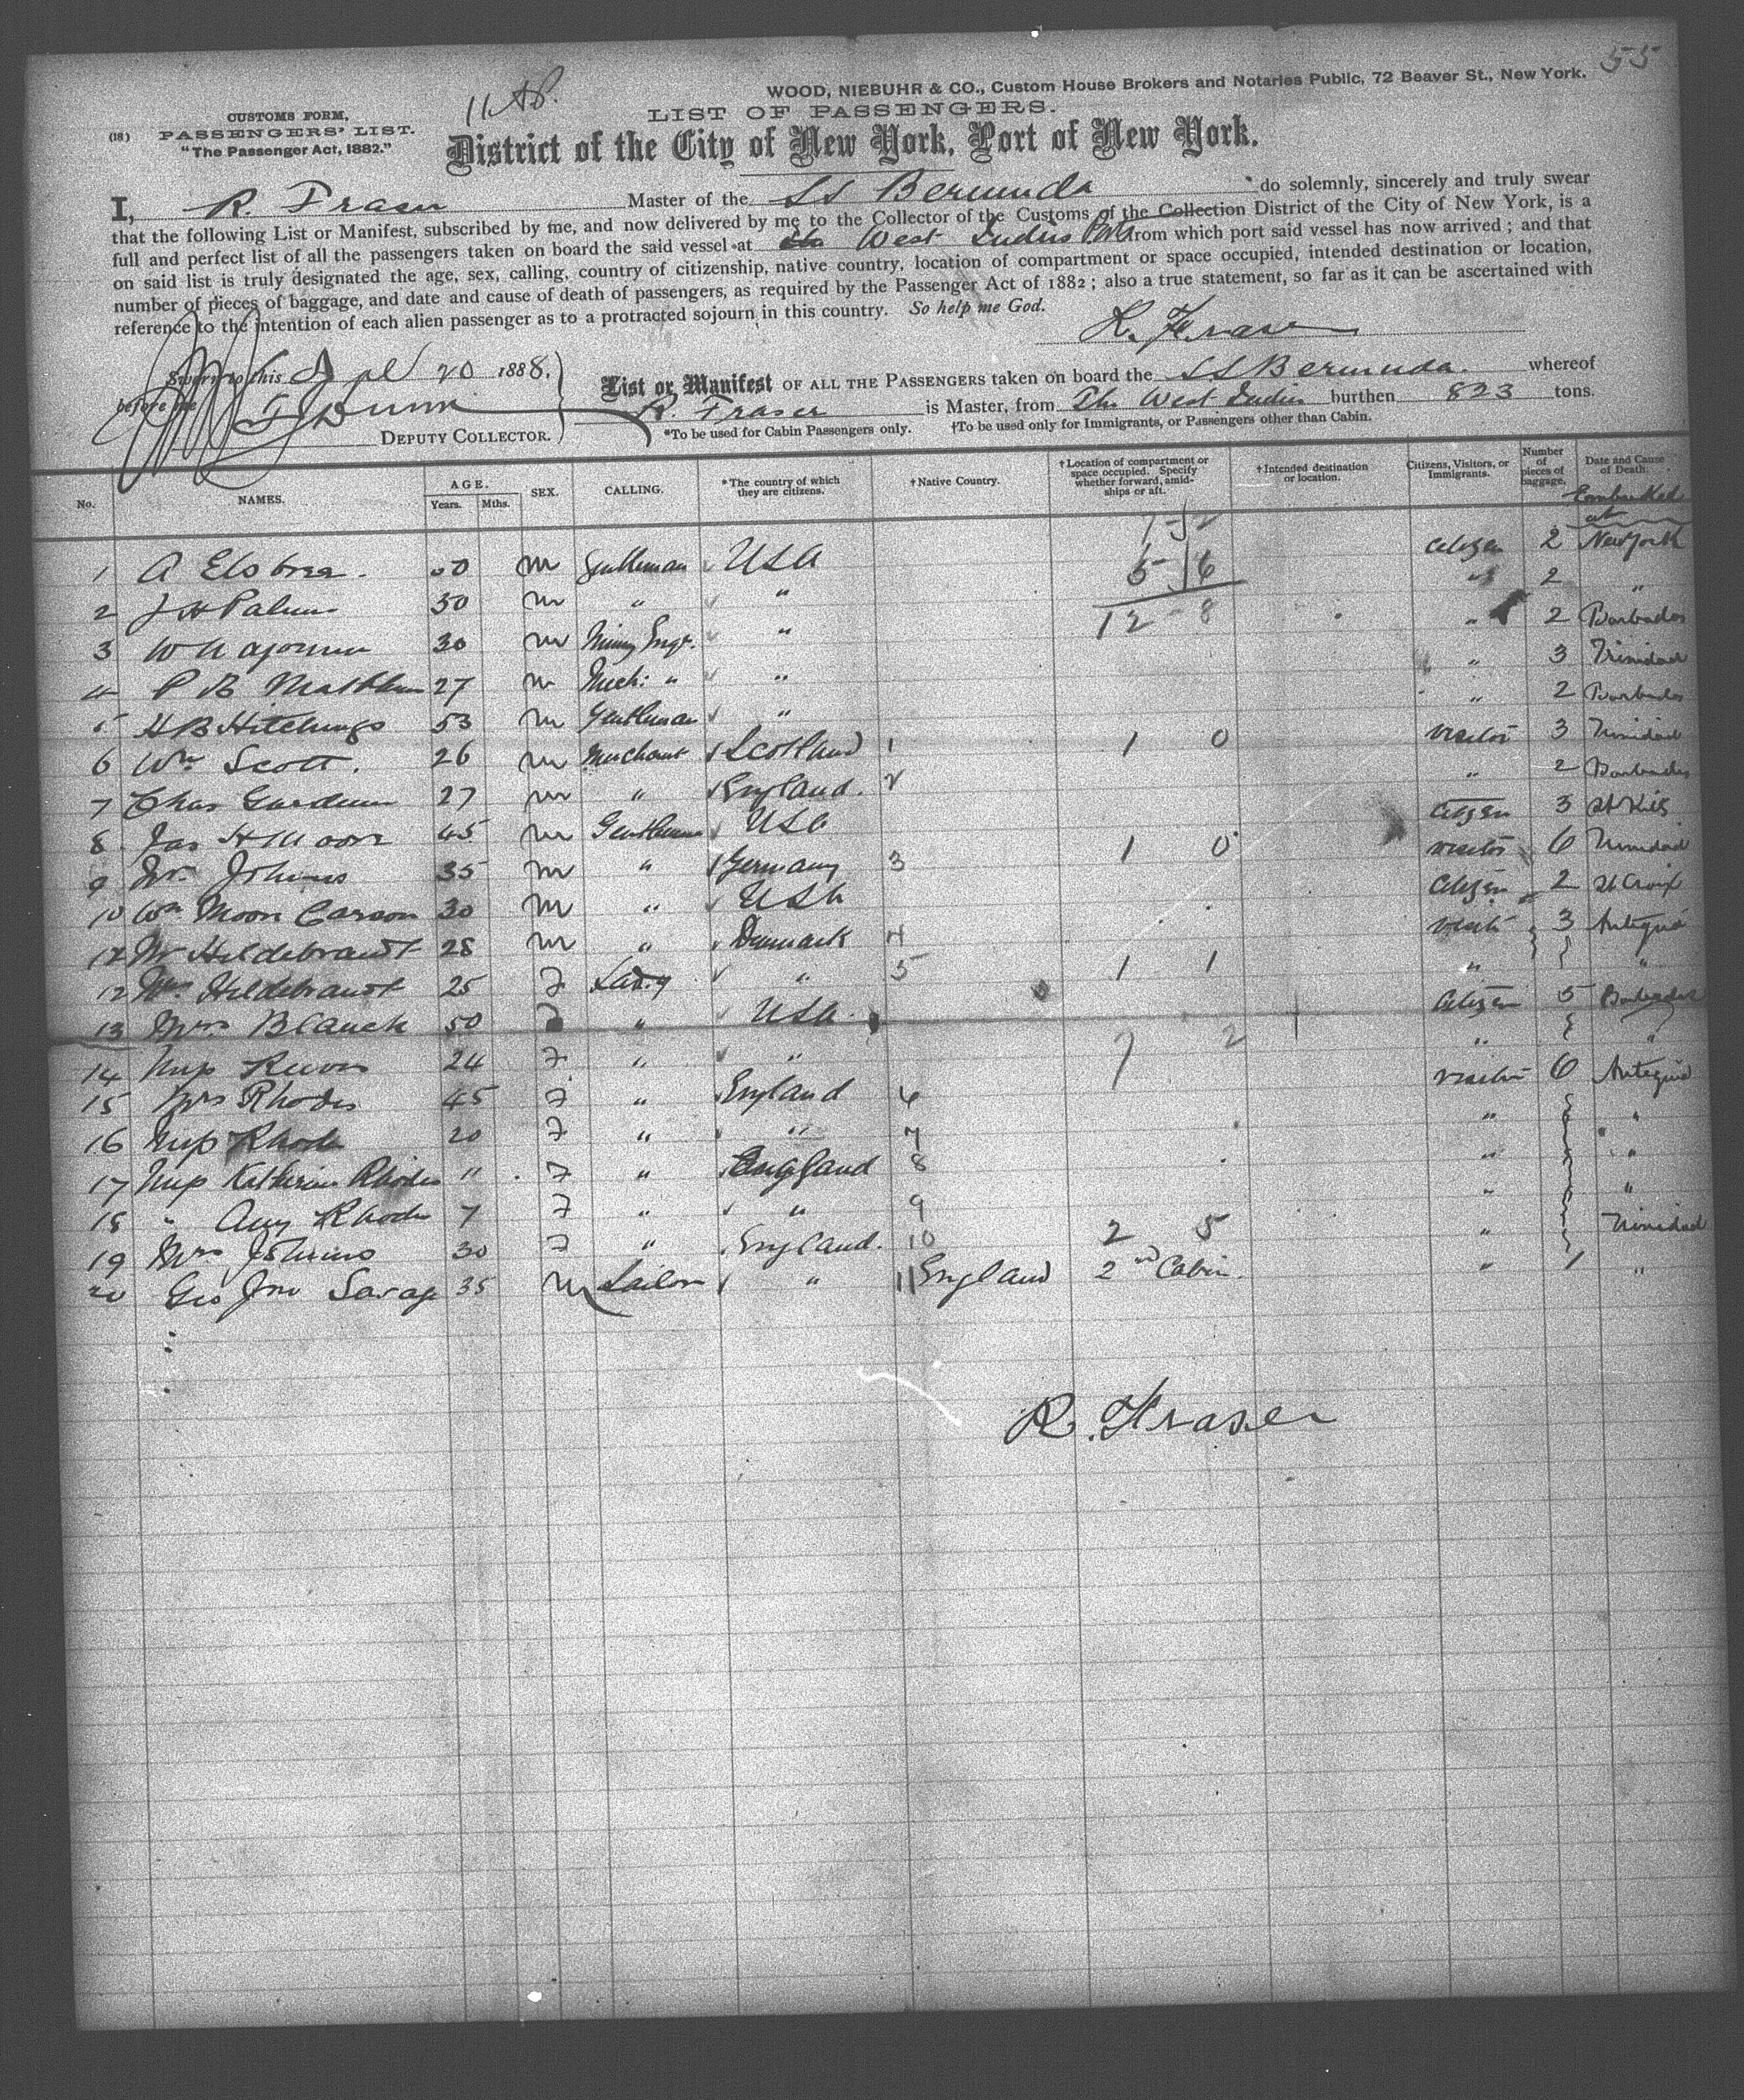 55
WOOD, NIEBUHR & CO., Custom House Brokers and Notaries Public, 72 Beaver St., New York.
CUSTOMS FORM,
(18) PASSENGERS' LIST.
"The Passenger Act, 1882."
LIST OF PASSENGERS.
District of the City of New York, Port of New York.
I, R. Fraser Master of the SS Bermuda do solemnly, sincerely and truly swear
that the following List or Manifest, subscribed by me, and now delivered by me to the Collector of the Customs of the Collection District of the City of New York, is a
full and perfect list of all the passengers taken on board the said vessel at West Indies from which port said vessel has now arrived; and that
on said list is truly designated the age, sex, calling, country of citizenship, native country, location of compartment or space occupied, intended destination or location,
number of pieces of baggage, and date and cause of death of passengers, as required by the Passenger Act of 1882; also a true statement, so far as it can be ascertained with
reference to the intention of each alien passenger as to a protracted sojourn in this country. So help me God.
R. Fraser
Sworn to this 20 1888.
before me
DEPUTY COLLECTOR.
List or Manifest OF ALL THE PASSENGERS taken on board the SS Bermuda. whereof
R. Fraser is Master, from The West Indies burthen 823 tons.
*To be used for Cabin Passengers only. †To be used only for Immigrants, or Passengers other than Cabin.
No. NAMES. AGE. Years. Mths. SEX. CALLING. *The country of which they are citizens. †Native Country. †Location of compartment or space occupied. Specify whether forward, amidships or aft. †Intended destination or location. Citizens, Visitors, or Immigrants. Number of pieces of baggage. Date and Cause of Death.
Embarked at
1 A m Gentleman USA Citizen 2 New York
2 J H 30 m " " " 2 "
3 W 30 m Mining Engr. " " 2 Barbados
4 P B 27 m Mech: " " " 3 Trinidad
5 H B Hitchings 53 m Gentleman " " 2 Barbados
6 Wm Scott. 26 m Merchant Scotland 1 1 0 Visitor 3 Trinidad
7 Chas 27 m " England. 2 " 2 Barbados
8 Jas H Moore 45 m Gentleman USA Citizen 3 St Kits
9 Mr. 35 m " Germany 3 1 0 Visitor 6 Trinidad
10 Wm Moon Carson 30 m " USA Citizen 2 St Croix
12 Mr Hildebrandt 28 m " Denmark 4 Visitor 3 Antigua
12 Mrs Hildebrandt 25 F Lady " 5 1 1 " "
13 Mrs Blanck 50 " USA. Citizen 5 Barbados
14 Miss 24 F " " 7 2 " "
15 Mrs Rhodes 45 F " England 6 Visitor 6 Antigua
16 Miss Rhodes 20 F " " 7 " "
17 Miss Katherine Rhodes 11 F " England 8 " "
18 " Amy Rhodes 7 F " " 9 " "
19 Mrs 30 F " England. 10 2 5 " Trinidad
20 Geo Jno Savage 35 m Sailor " 11 England 2nd Cabin. " 1 "
R. Fraser